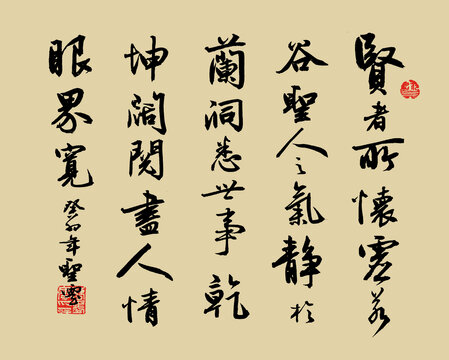 賢者所懷虛若
谷聖人之氣靜於
蘭洞悉世事乾
坤闊閱盡人情
眼界寬
癸卯年聖